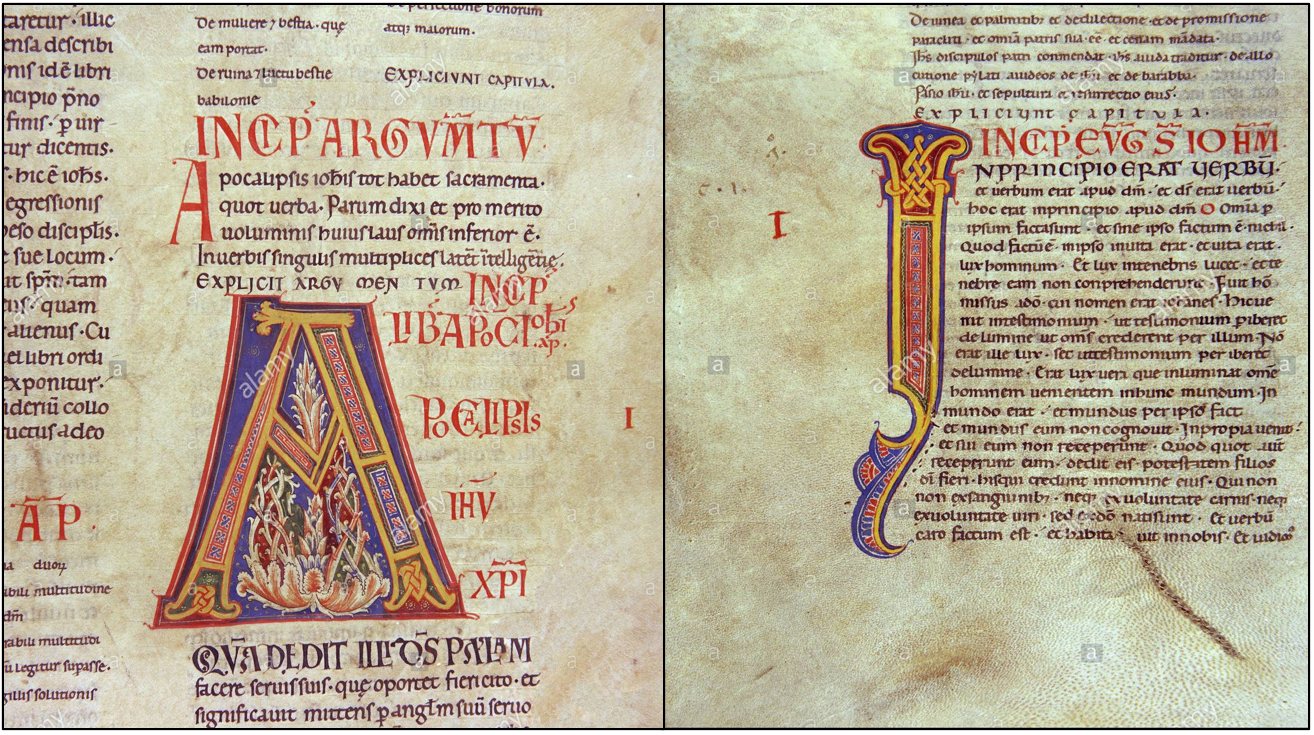 taretur · illic
ensa describi
nis id ē libri
ncipio p̄no
finis · ꝑ uir
tur dicentis·
· hic ē iohs̄·
egressionis
eso disciplis̄·
e sue locum·
it sp̄m · tam
us · quam
alienus · Cu
et libri ordi
exponitur·
ideriū collo
ructus adeo
A̅P̅·
duoꝝ
abili multitudine
dm̄
rabili multitudi
ū Legitur supasse·
gilus solutionis
De muliere ⁊ bestia · que
eam portat·
De ruina ⁊ luctu bestie
babilonie
De perfectione bonorum
atqꝫ malorum·
EXPLICIVNT CAPITVLA.
INCP̄ ARGVM̄TV̄·
Apocalipsis ioh̄is tot habet sacramenta·
quot uerba · Parum dixi et pro merito
uoluminis huius laus om̄is inferior ē·
In uerbis singulis multiplices latēt ītelligētie·
EXPLICIT ARGV MEN TVM INCP̄
LIB̄ APOCL̄ ioh̄is
xp̄·
POCALIPSIS
I
IHV̄
XP̄I
QVĀ DEDIT ILLI D̄S PALAM
facere seruis suis · quę oportet fieri cito · et
significauit mittens ꝑ anglm̄ suū seruo
De uinea et palmitibꝫ et de dilectione · et de promissione
paracliti · et omia patris sua · ēē · et cenam mādata·
Ihs̄ discipulos patri commendat · ih̄s iuda traditur · de allo
cutione pylati ad iudeos de ih̄u et de barabba·
Pasio ih̄u · et sepultura et resurrectio eius·
Expliciunt capitula·
INCP̄ EV̄G S̄ IOH̄M
I
INPRINCIPIO ERAT VERBV̄·
et uerbum erat apud dm̄ · et ds̄ erat uerbū·
hoc erat inprincipio apud dm̄ Omia ꝑ
ipsum facta sunt · et sine ipso factum ē nichil·
Quod factū ē inipso uita erat · et uita erat
lux hominum · Et lux intenebris lucet · et te
nebre eam non conprehenderunt · Fuit hō
missus adō · cui nomen erat iohanes · Hic ue
nit intestimonium · ut testimonium ꝑiberet
de lumine ut oms̄ crederent per illum · Nō
erat ille lux · set ut testimonium per iberet
delumine · Erat lux uera que inluminat omē
hominem uenientem inhunc mundum · In
mundo erat · et mundus per ipsū fact
et mundus eum non cognouit · In propia uenit·
et sui eum non receperunt · Quod quot aut̄
receperunt eum · dedit eis potestatem filios
dī fieri · his qui credunt innomine eius · Qui non
non exsanguinibꝫ · neqꝫ exuoluntate carnis · neqꝫ
exuoluntate uiri · sed exdō nati sunt · Et uerbū
caro factum est · et habita uit in nobis · Et uidim⁹